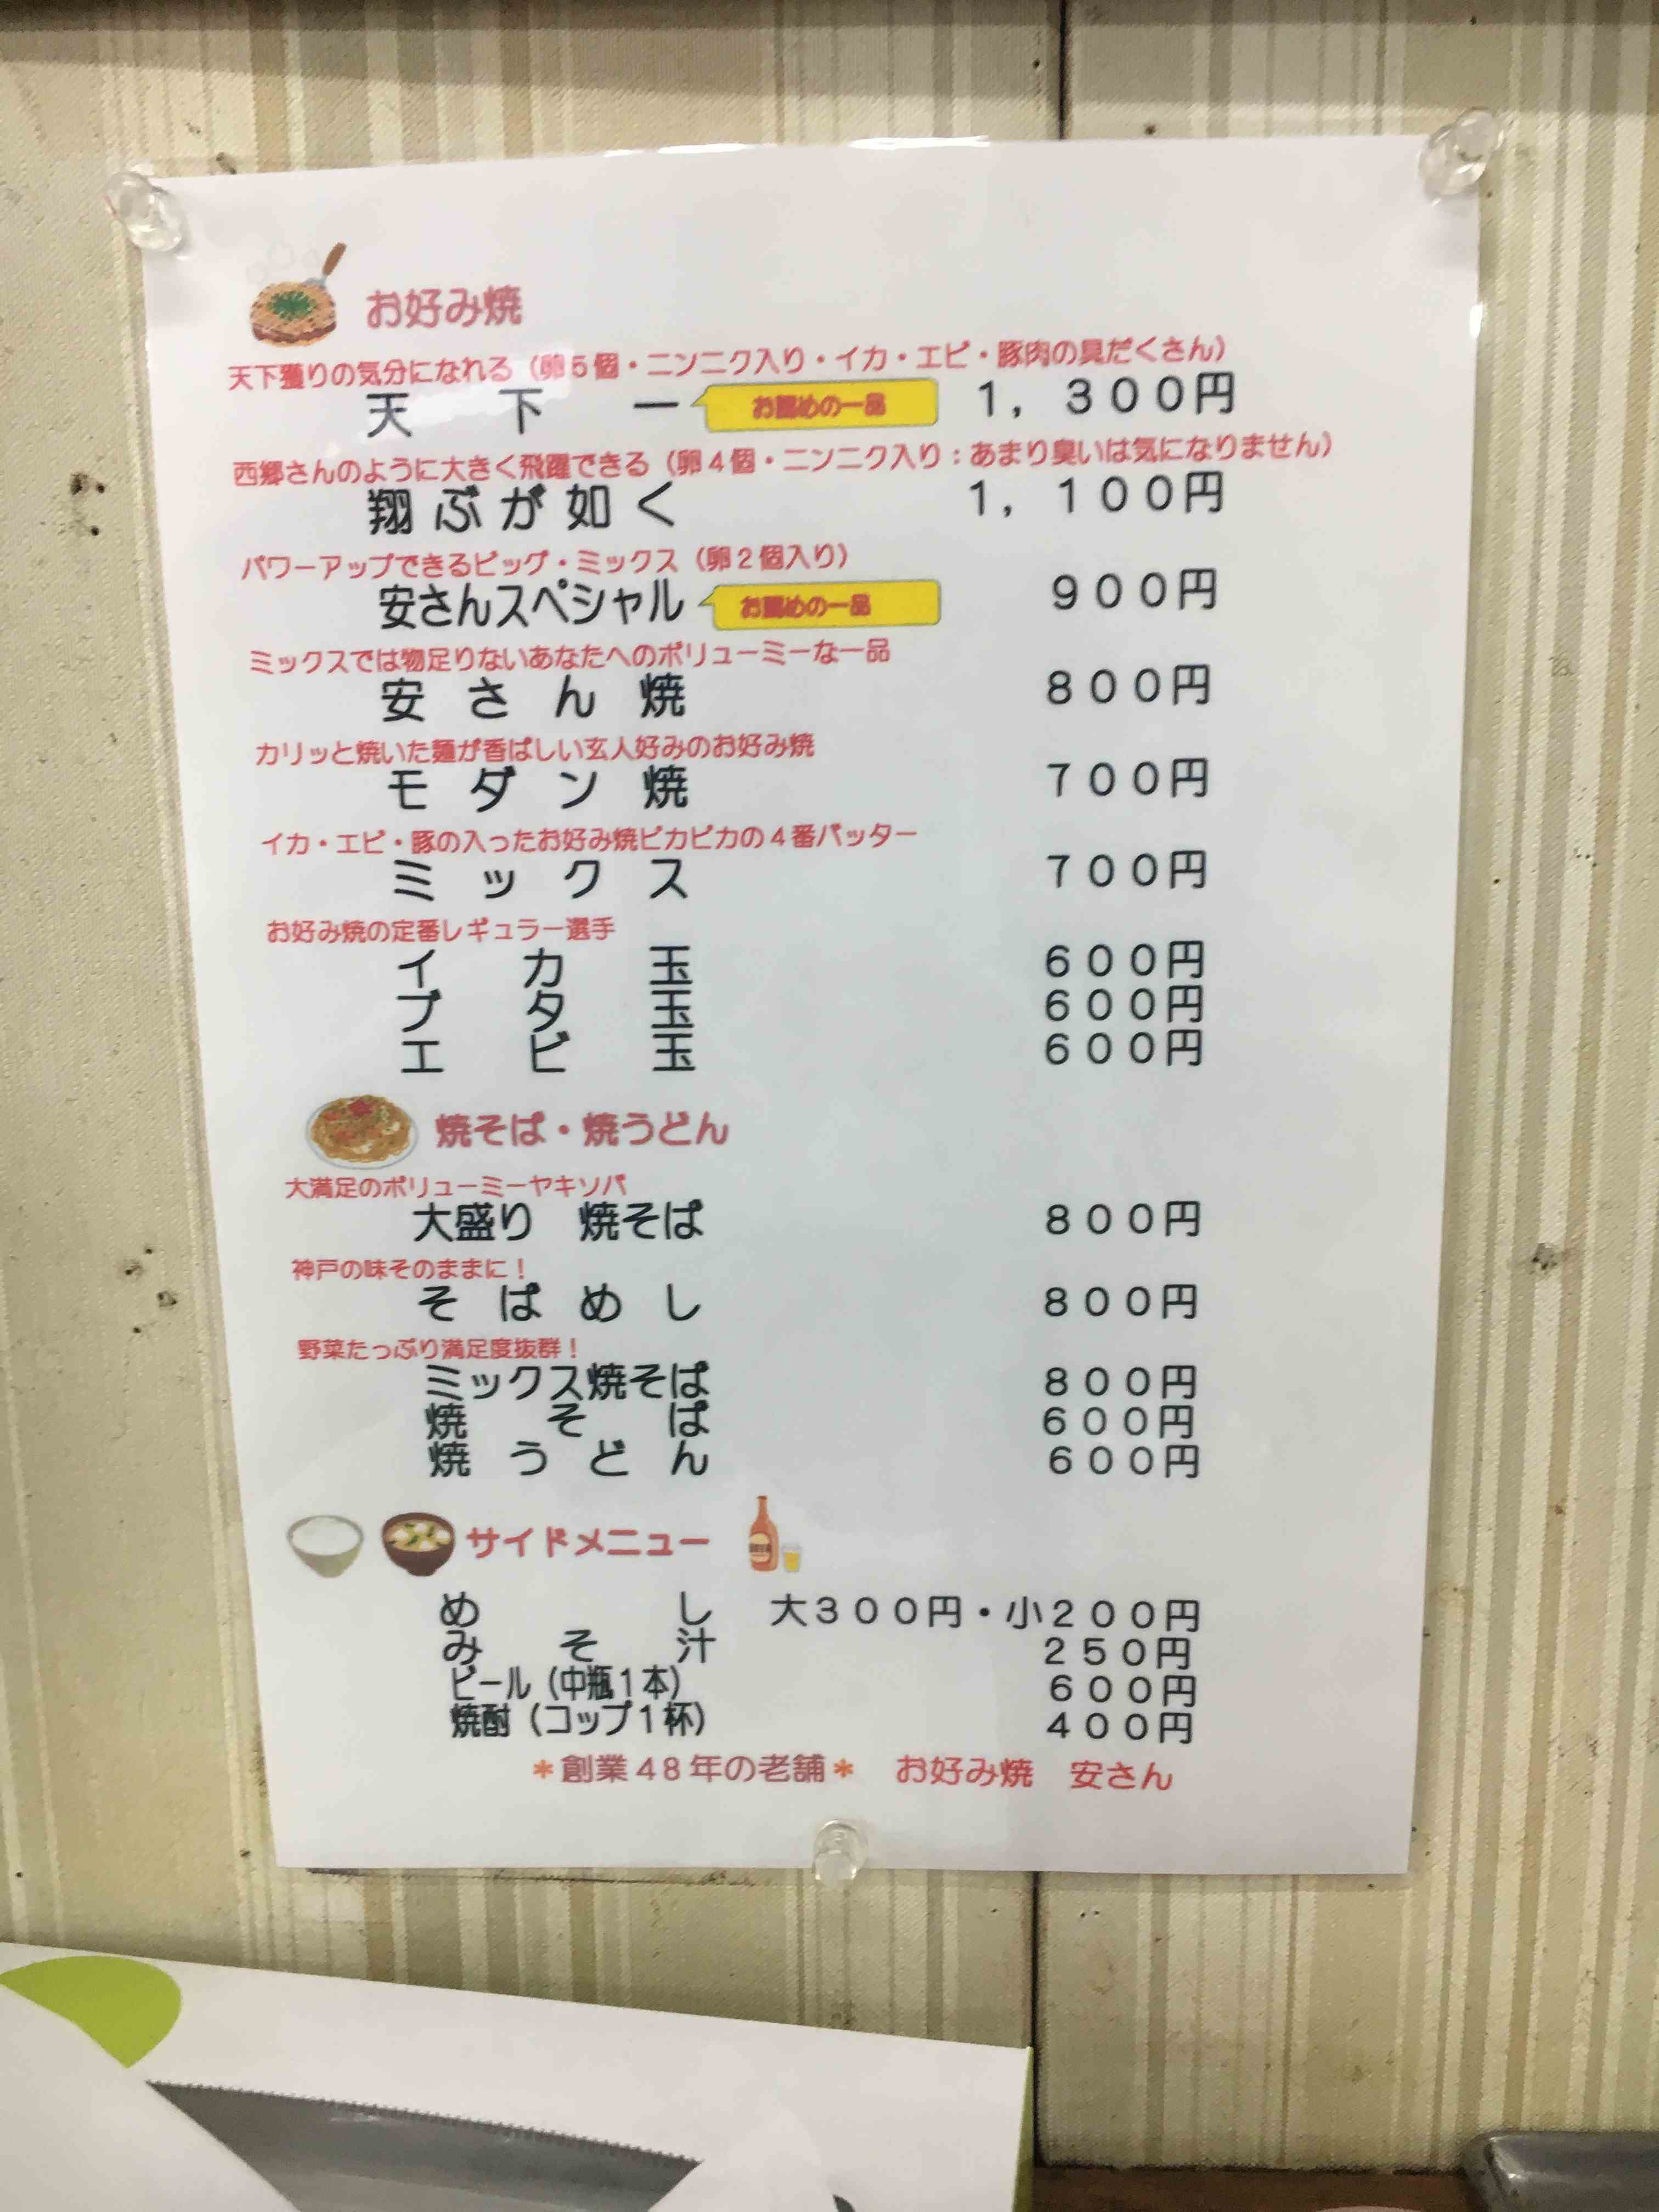 お好み焼
天下獲りの気分になれる（卵５個・ニンニク入り・イカ・エビ・豚肉の具だくさん）
天下一 お薦めの一品 １，３００円
西郷さんのように大きく飛躍できる（卵４個・ニンニク入り：あまり臭いは気になりません）
翔ぶが如く １，１００円
パワーアップできるビッグ・ミックス（卵２個入り）
安さんスペシャル お薦めの一品 ９００円
ミックスでは物足りないあなたへのボリューミーな一品
安さん焼 ８００円
カリッと焼いた麺が香ばしい玄人好みのお好み焼
モダン焼 ７００円
イカ・エビ・豚の入ったお好み焼ピカピカの４番バッター
ミックス ７００円
お好み焼の定番レギュラー選手
イカ玉 ６００円
ブタ玉 ６００円
エビ玉 ６００円
焼そば・焼うどん
大満足のボリューミーヤキソバ
大盛り 焼そば ８００円
神戸の味そのままに！
そばめし ８００円
野菜たっぷり満足度抜群！
ミックス焼そば ８００円
焼そば ６００円
焼うどん ６００円
サイドメニュー
めし 大３００円・小２００円
みそ汁 ２５０円
ビール（中瓶１本） ６００円
焼酎（コップ１杯） ４００円
＊創業４８年の老舗＊ お好み焼 安さん